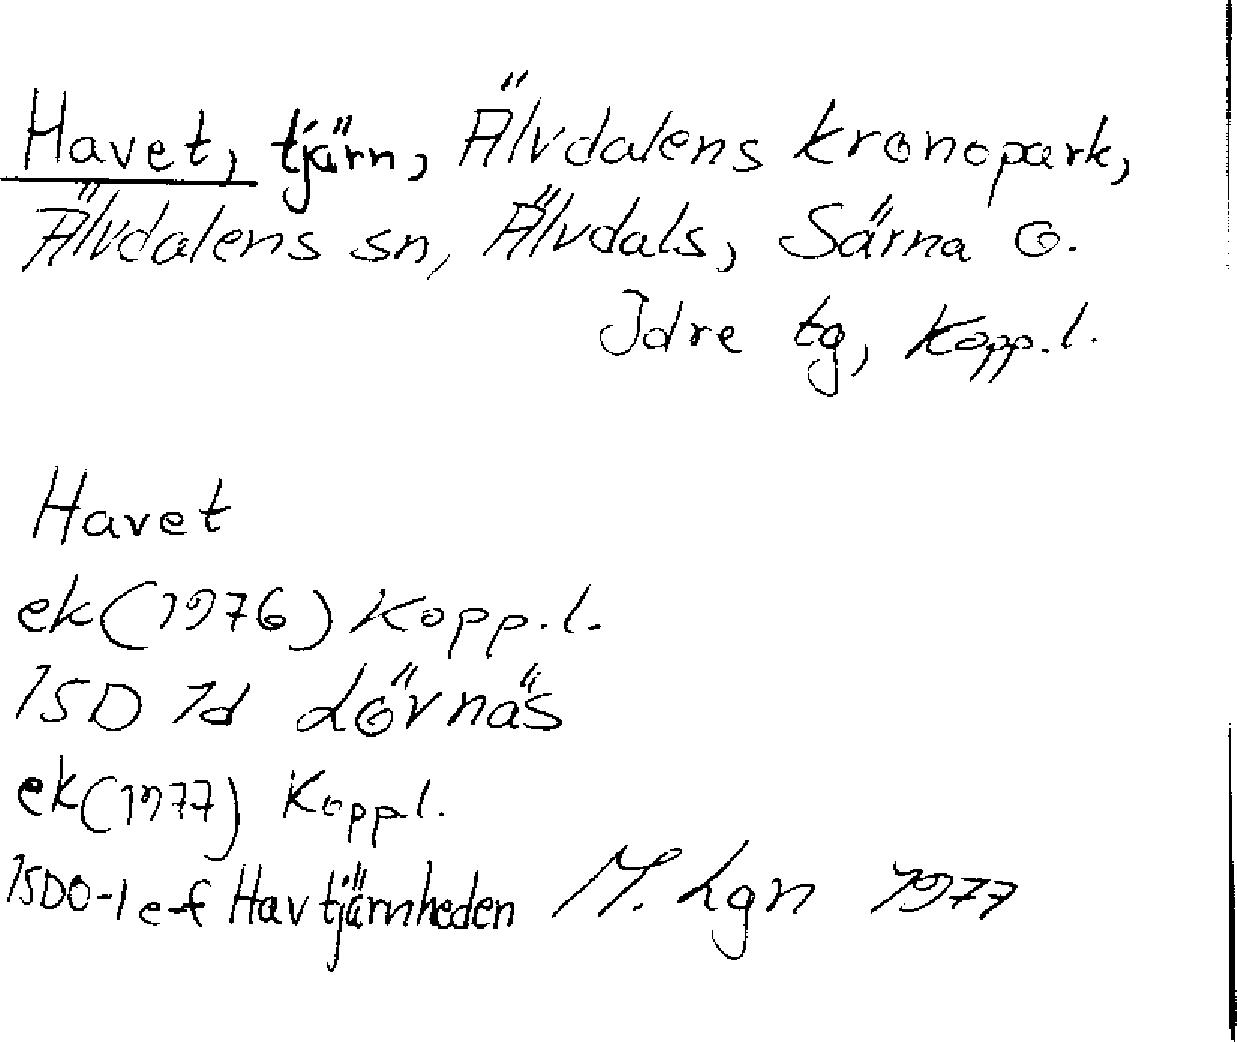 Havet, tjärn, Älvdalens kronopark,
Älvdalens sn, Älvdals, Särna o.
Idre tg, Kopp.l.
Havet
ek (1976) Kopp.l.
15D 1d Lövnäs
ek (1977) Koppl.
15D0-1 e-f Havtjärnheden M. Lgn 1977